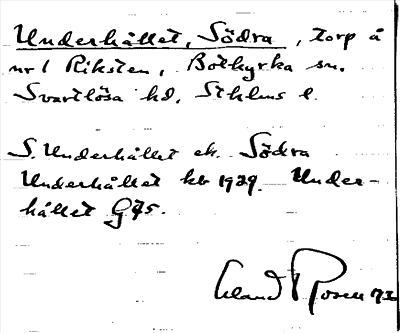 Underhållet, Södra, torp å
nr 1 Riksten, Botkyrka sn.
Svartlösa hd, Sthlms l.
S. Underhållet ek. Södra
Underhållet kb 1929. Under-
hållet G95.
Rosen